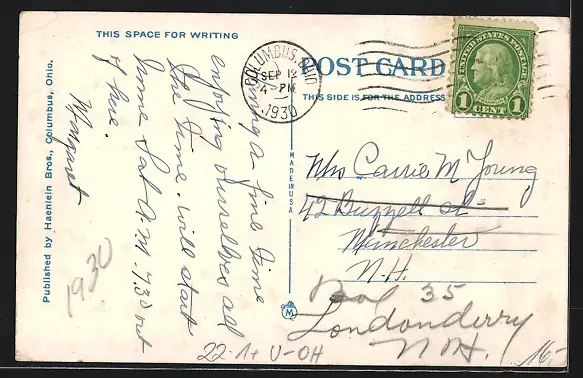 THIS SPACE FOR WRITING
Having a fine time
enjoying ourselves all
the time. will start
home Sat A.M. 7.30 out
of here.
Margaret
1930
Published by Haenlein Bros., Columbus, Ohio.
COLUMBUS, OHIO
SEP 12
4 - PM
1930
POST CARD
THIS SIDE IS FOR THE ADDRESS
UNITED STATES POSTAGE
FRANKLIN
1 CENT 1
MADE IN USA
Mrs Carrie M Young
42 St
Manchester
N.H.
Box 35
Londonderry
N.H.
22-1+ U-OH
16-